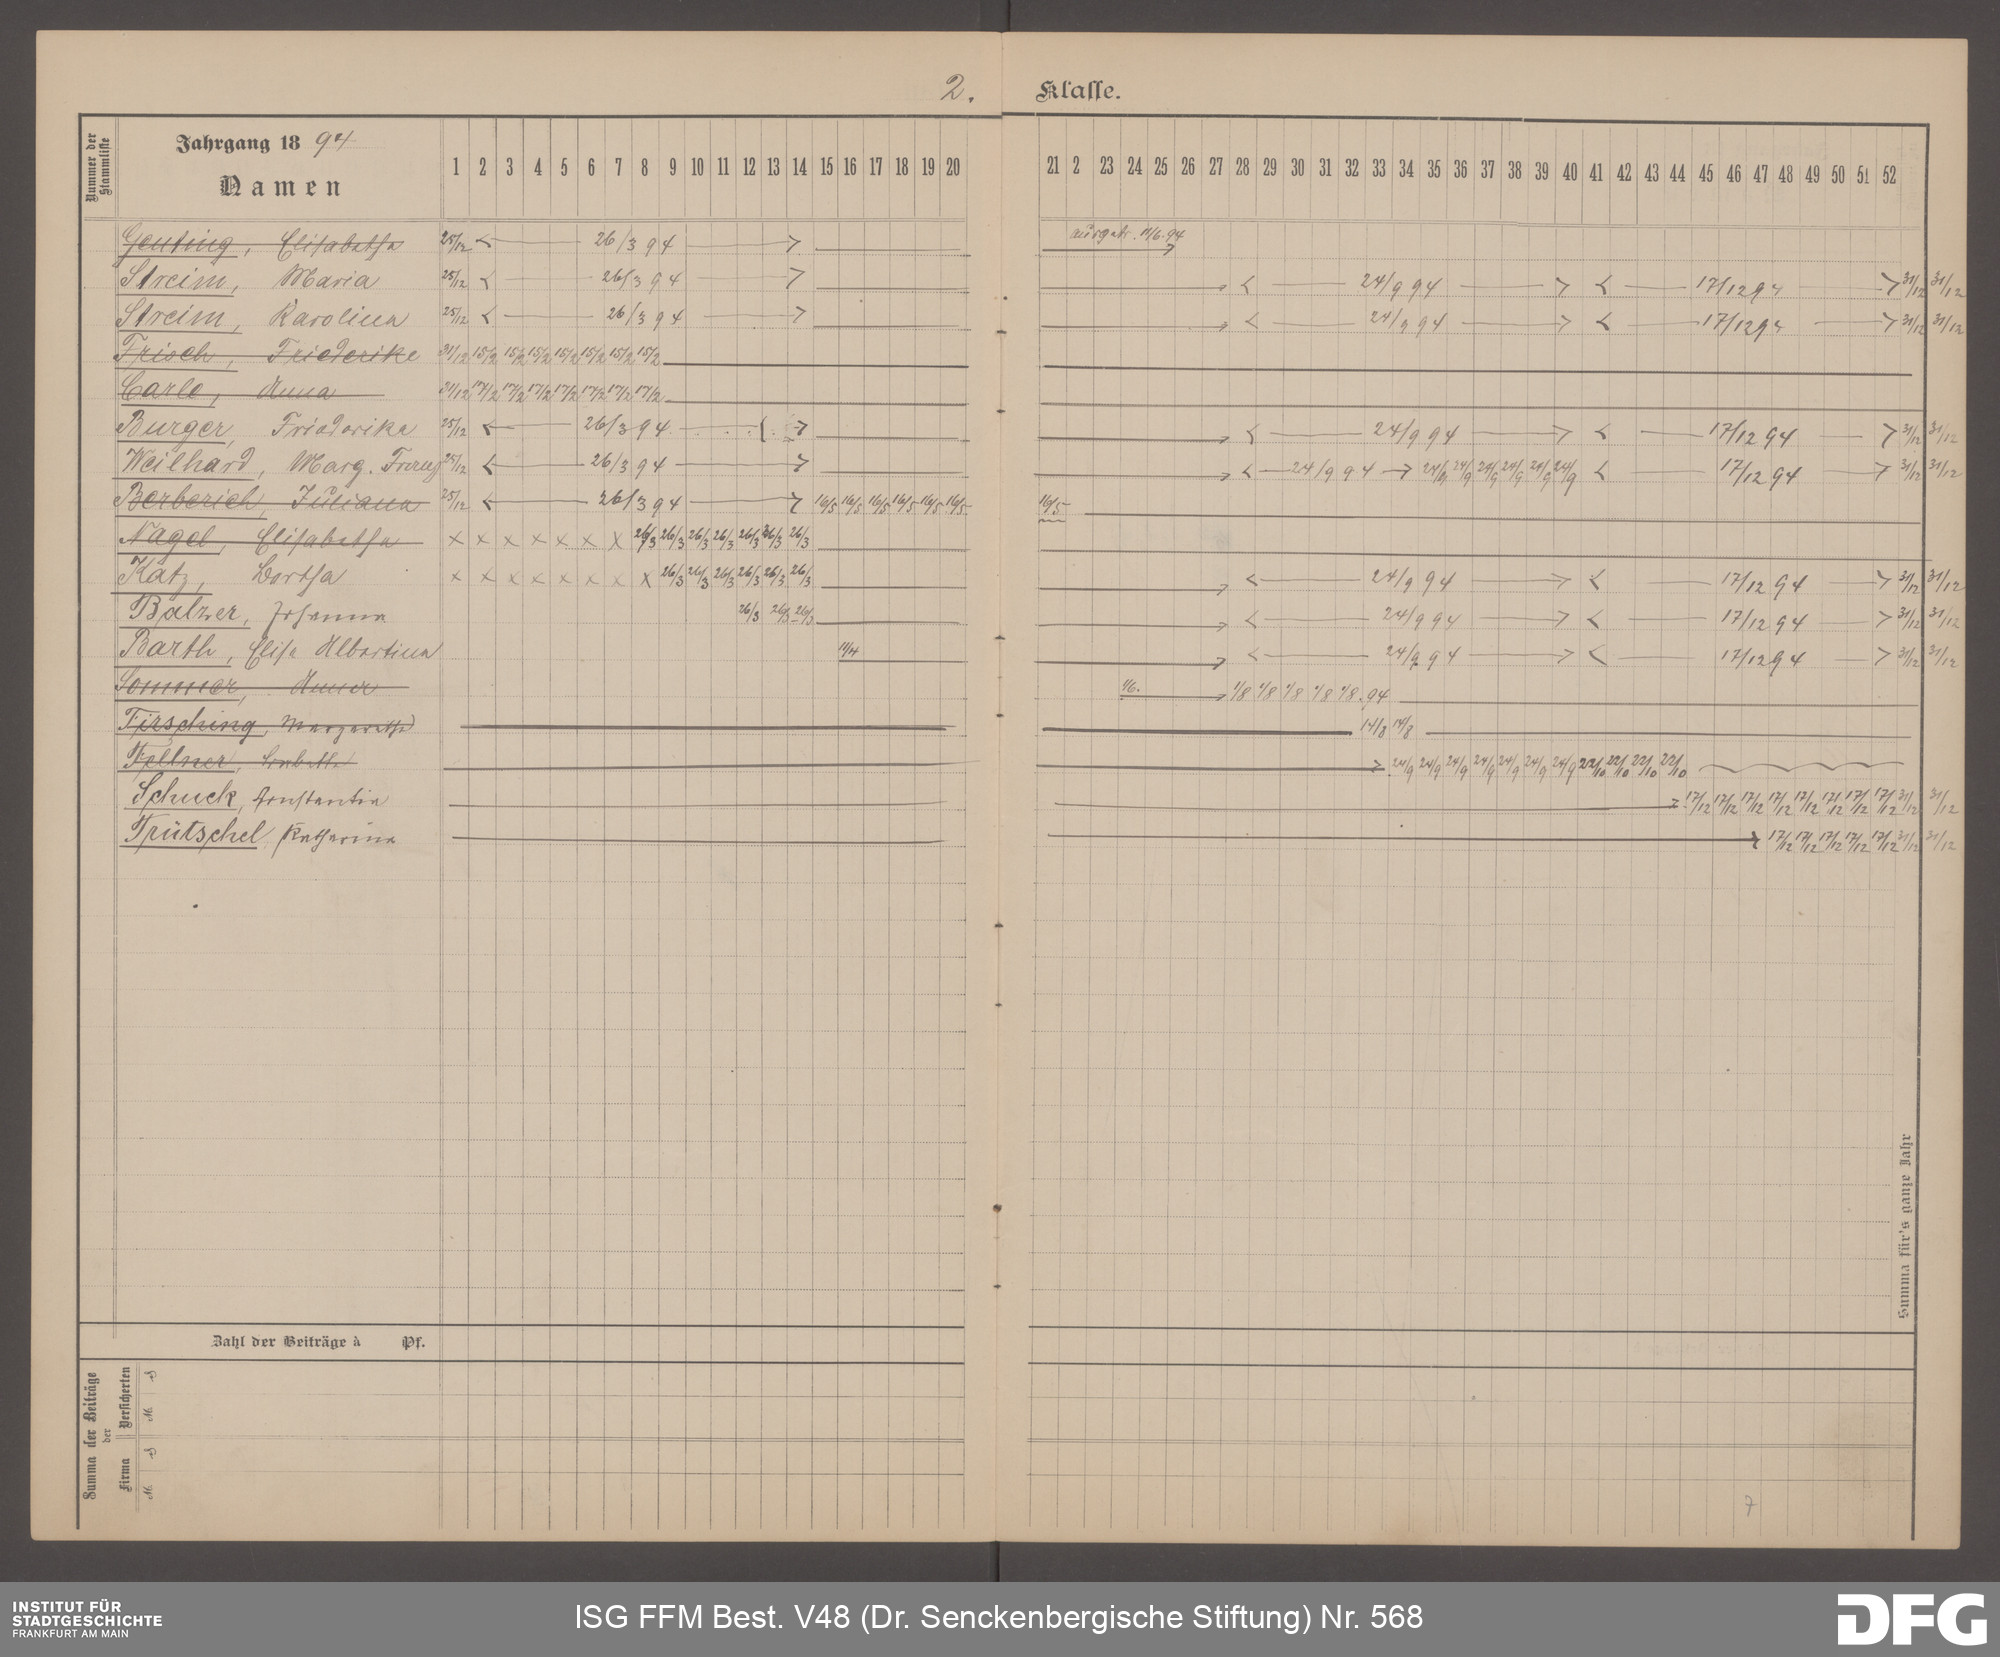 2. Klasse.
Nummer der Stammliste
Jahrgang 1894
Namen
1 2 3 4 5 6 7 8 9 10 11 12 13 14 15 16 17 18 19 20 21 2 23 24 25 26 27 28 29 30 31 32 33 34 35 36 37 38 39 40 41 42 43 44 45 46 47 48 49 50 51 52
Genting, Elisabetha 25/12 26/3 94 ausgetr. 11/6.94
Streim, Maria 25/12 26/3 94 24/9 94 17/12 94 31/12 31/12
Streim, Karolina 25/12 26/3 94 24/9 94 17/12 94 31/12 31/12
Frisch, Friederike 31/12 15/2 15/2 15/2 15/2 15/2 15/2 15/2
Carle, Anna 31/12 17/2 17/2 17/2 17/2 17/2 17/2 17/2
Burger, Friederike 25/12 26/3 94 24/9 94 17/12 94 31/12 31/12
Weilhard, Marg. 25/12 26/3 94 24/9 94 24/9 24/9 24/9 24/9 24/9 24/9 17/12 94 31/12 31/12
Berberich, Juliana 25/12 26/3 94 16/5 16/5 16/5 16/5 16/5 16/5 16/5
Nagel, Elisabetha x x x x x x x 26/3 26/3 26/3 26/3 26/3 26/3 26/3
Katz, Bertha x x x x x x x x 26/3 26/3 26/3 26/3 26/3 26/3 24/9 94 17/12 94 31/12 31/12
Balzer, Johanna 26/3 26/3 26/3 24/9 94 17/12 94 31/12 31/12
Barth, Elise Albertina 11/4 24/9 94 17/12 94 31/12 31/12
Sommer, Anna 1/6. 1/8 1/8 1/8 1/8 1/8.94
Firsching, Margaretha 14/8 14/8
Fellner, Babette 24/9 24/9 24/9 24/9 24/9 24/9 24/9 22/10 22/10 22/10 22/10
Schuck, Konstantin 17/12 17/12 17/12 17/12 17/12 17/12 17/12 17/12 31/12 31/12
Trütschel Katharina 17/12 17/12 17/12 17/12 17/12 31/12 31/12
Summa für's ganze Jahr
Zahl der Beiträge à Pf.
Summa der Beiträge
der
Firma Versicherten
M. S M. S
7
INSTITUT FÜR
STADTGESCHICHTE
FRANKFURT AM MAIN
ISG FFM Best. V48 (Dr. Senckenbergische Stiftung) Nr. 568
DFG